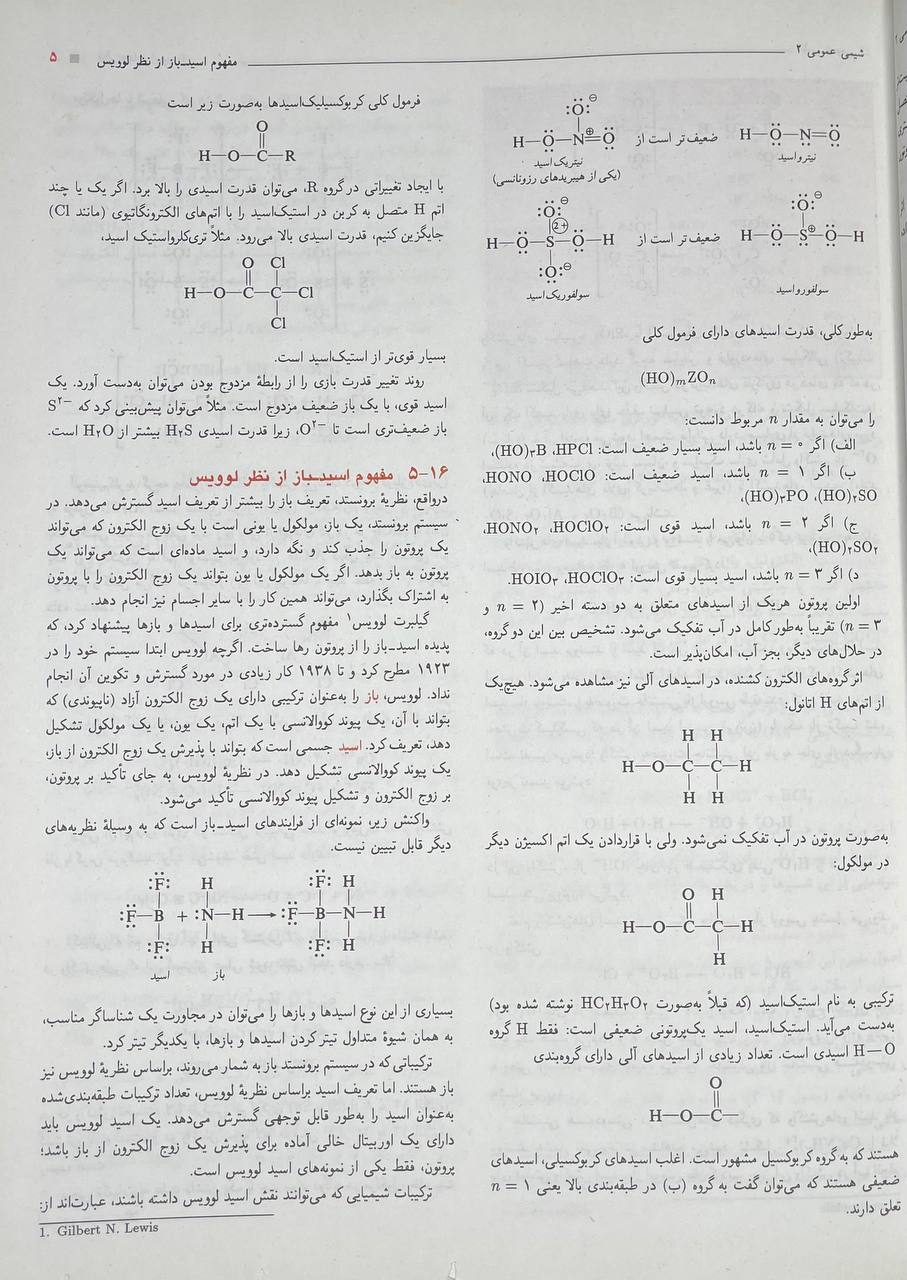 شیمی عمومی ۲
مفهوم اسید‌ـ‌باز از نظر لوویس ۵
H—O—N=O ضعیف تر است از H—O—N=O
:O:⊖
⊕
نیترواسید
نیتریک‌اسید
(یکی از هیبریدهای رزونانسی)
H—O—S—O—H ضعیف تر است از H—O—S—O—H
:O:⊖
⊕
:O:⊖
2+
:O:⊖
سولفورواسید
سولفوریک‌اسید
به‌طور کلی، قدرت اسیدهای دارای فرمول کلی
(HO)mZOn
را می‌توان به مقدار n مربوط دانست:
الف) اگر n = ۰ باشد، اسید بسیار ضعیف است: HPCl، (HO)۳B،
ب) اگر n = ۱ باشد، اسید ضعیف است: HOClO، HONO،
(HO)۲SO، (HO)۳PO،
ج) اگر n = ۲ باشد، اسید قوی است: HOClO۲، HONO۲،
(HO)۲SO۲،
د) اگر n = ۳ باشد، اسید بسیار قوی است: HOClO۳، HOIO۳.
اولین پروتون هریک از اسیدهای متعلق به دو دسته اخیر (n = ۲ و
n = ۳) تقریباً به‌طور کامل در آب تفکیک می‌شود. تشخیص بین این دو گروه،
در حلال‌های دیگر، بجز آب، امکان‌پذیر است.
اثر گروه‌های الکترون کشنده، در اسیدهای آلی نیز مشاهده می‌شود. هیچ‌یک
از اتم‌های H اتانول:
H H
H—O—C—C—H
H H
به‌صورت پروتون در آب تفکیک نمی‌شود. ولی با قراردادن یک اتم اکسیژن دیگر
در مولکول:
O H
H—O—C—C—H
H
ترکیبی به نام استیک‌اسید (که قبلاً به‌صورت HC۲H۳O۲ نوشته شده بود)
به‌دست می‌آید. استیک‌اسید، اسید یک‌پروتونی ضعیفی است: فقط H گروه
H—O اسیدی است. تعداد زیادی از اسیدهای آلی دارای گروه‌بندی
O
H—O—C—
هستند که به گروه کربوکسیل مشهور است. اغلب اسیدهای کربوکسیلی، اسیدهای
ضعیفی هستند که می‌توان گفت به گروه (ب) در طبقه‌بندی بالا یعنی n = ۱
تعلق دارند.
فرمول کلی کربوکسیلیک‌اسیدها به‌صورت زیر است
O
H—O—C—R
با ایجاد تغییراتی در گروه R، می‌توان قدرت اسیدی را بالا برد. اگر یک یا چند
اتم H متصل به کربن در استیک‌اسید را با اتم‌های الکترونگاتیوی (مانند Cl)
جایگزین کنیم، قدرت اسیدی بالا می‌رود. مثلاً تری‌کلرواستیک اسید،
O Cl
H—O—C—C—Cl
Cl
بسیار قوی‌تر از استیک‌اسید است.
روند تغییر قدرت بازی را از رابطهٔ مزدوج بودن می‌توان به‌دست آورد. یک
اسید قوی، با یک باز ضعیف مزدوج است. مثلاً می‌توان پیش‌بینی کرد که S۲−
باز ضعیف‌تری است تا O۲−، زیرا قدرت اسیدی H۲S بیشتر از H۲O است.
۵-۱۶ مفهوم اسیدـباز از نظر لوویس
درواقع، نظریهٔ برونستد، تعریف باز را بیشتر از تعریف اسید گسترش می‌دهد. در
سیستم برونستد، یک باز، مولکول یا یونی است با یک زوج الکترون که می‌تواند
یک پروتون را جذب کند و نگه دارد، و اسید ماده‌ای است که می‌تواند یک
پروتون به باز بدهد. اگر یک مولکول یا یون بتواند یک زوج الکترون را با پروتون
به اشتراک بگذارد، می‌تواند همین کار را با سایر اجسام نیز انجام دهد.
گیلبرت لوویس۱ مفهوم گسترده‌تری برای اسیدها و بازها پیشنهاد کرد، که
پدیده اسیدـباز را از پروتون رها ساخت. اگرچه لوویس ابتدا سیستم خود را در
۱۹۲۳ مطرح کرد و تا ۱۹۳۸ کار زیادی در مورد گسترش و تکوین آن انجام
نداد. لوویس، باز را به‌عنوان ترکیبی دارای یک زوج الکترون آزاد (ناپیوندی) که
بتواند با آن، یک پیوند کووالانسی با یک اتم، یک یون، یا یک مولکول تشکیل
دهد، تعریف کرد. اسید جسمی است که بتواند با پذیرش یک زوج الکترون از باز،
یک پیوند کووالانسی تشکیل دهد. در نظریهٔ لوویس، به جای تأکید بر پروتون،
بر زوج الکترون و تشکیل پیوند کووالانسی تأکید می‌شود.
واکنش زیر، نمونه‌ای از فرایندهای اسیدـباز است که به وسیلهٔ نظریه‌های
دیگر قابل تبیین نیست.
:F: H :F: H
:F—B + :N—H → :F—B—N—H
:F: H :F: H
اسید باز
بسیاری از این نوع اسیدها و بازها را می‌توان در مجاورت یک شناساگر مناسب،
به همان شیوهٔ متداول تیتر کردن اسیدها و بازها، با یکدیگر تیتر کرد.
ترکیباتی که در سیستم برونستد باز به شمار می‌روند، براساس نظریهٔ لوویس نیز
باز هستند. اما تعریف اسید براساس نظریهٔ لوویس، تعداد ترکیبات طبقه‌بندی‌شده
به‌عنوان اسید را به‌طور قابل توجهی گسترش می‌دهد. یک اسید لوویس باید
دارای یک اوربیتال خالی آماده برای پذیرش یک زوج الکترون از باز باشد؛
پروتون، فقط یکی از نمونه‌های اسید لوویس است.
ترکیبات شیمیایی که می‌توانند نقش اسید لوویس داشته باشند، عبارت‌اند از:
1. Gilbert N. Lewis